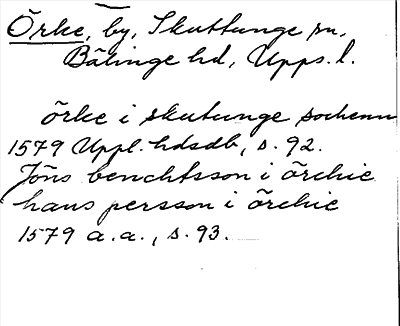 Örke, by, Skuttunge sn,
Bälinge hd, Upps. l.
örke i skutunge sochenn
1579 Uppl. hdsdb, s. 92.
Jöns benchtsson i örchie
hans persson i örchie
1579 a.a., s. 93.